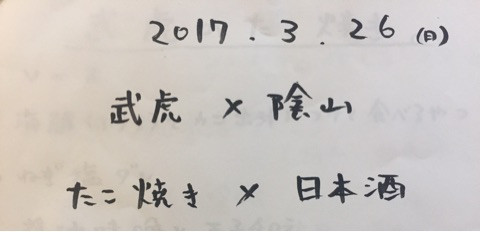 2017.3.26(日)
武虎×陰山
たこ焼き×日本酒